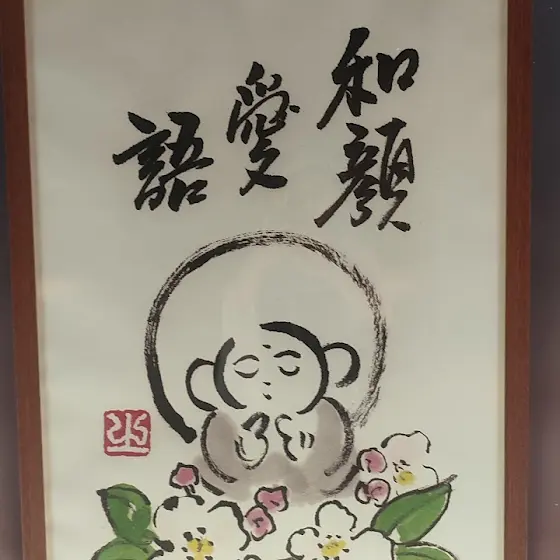 和顔
愛
語